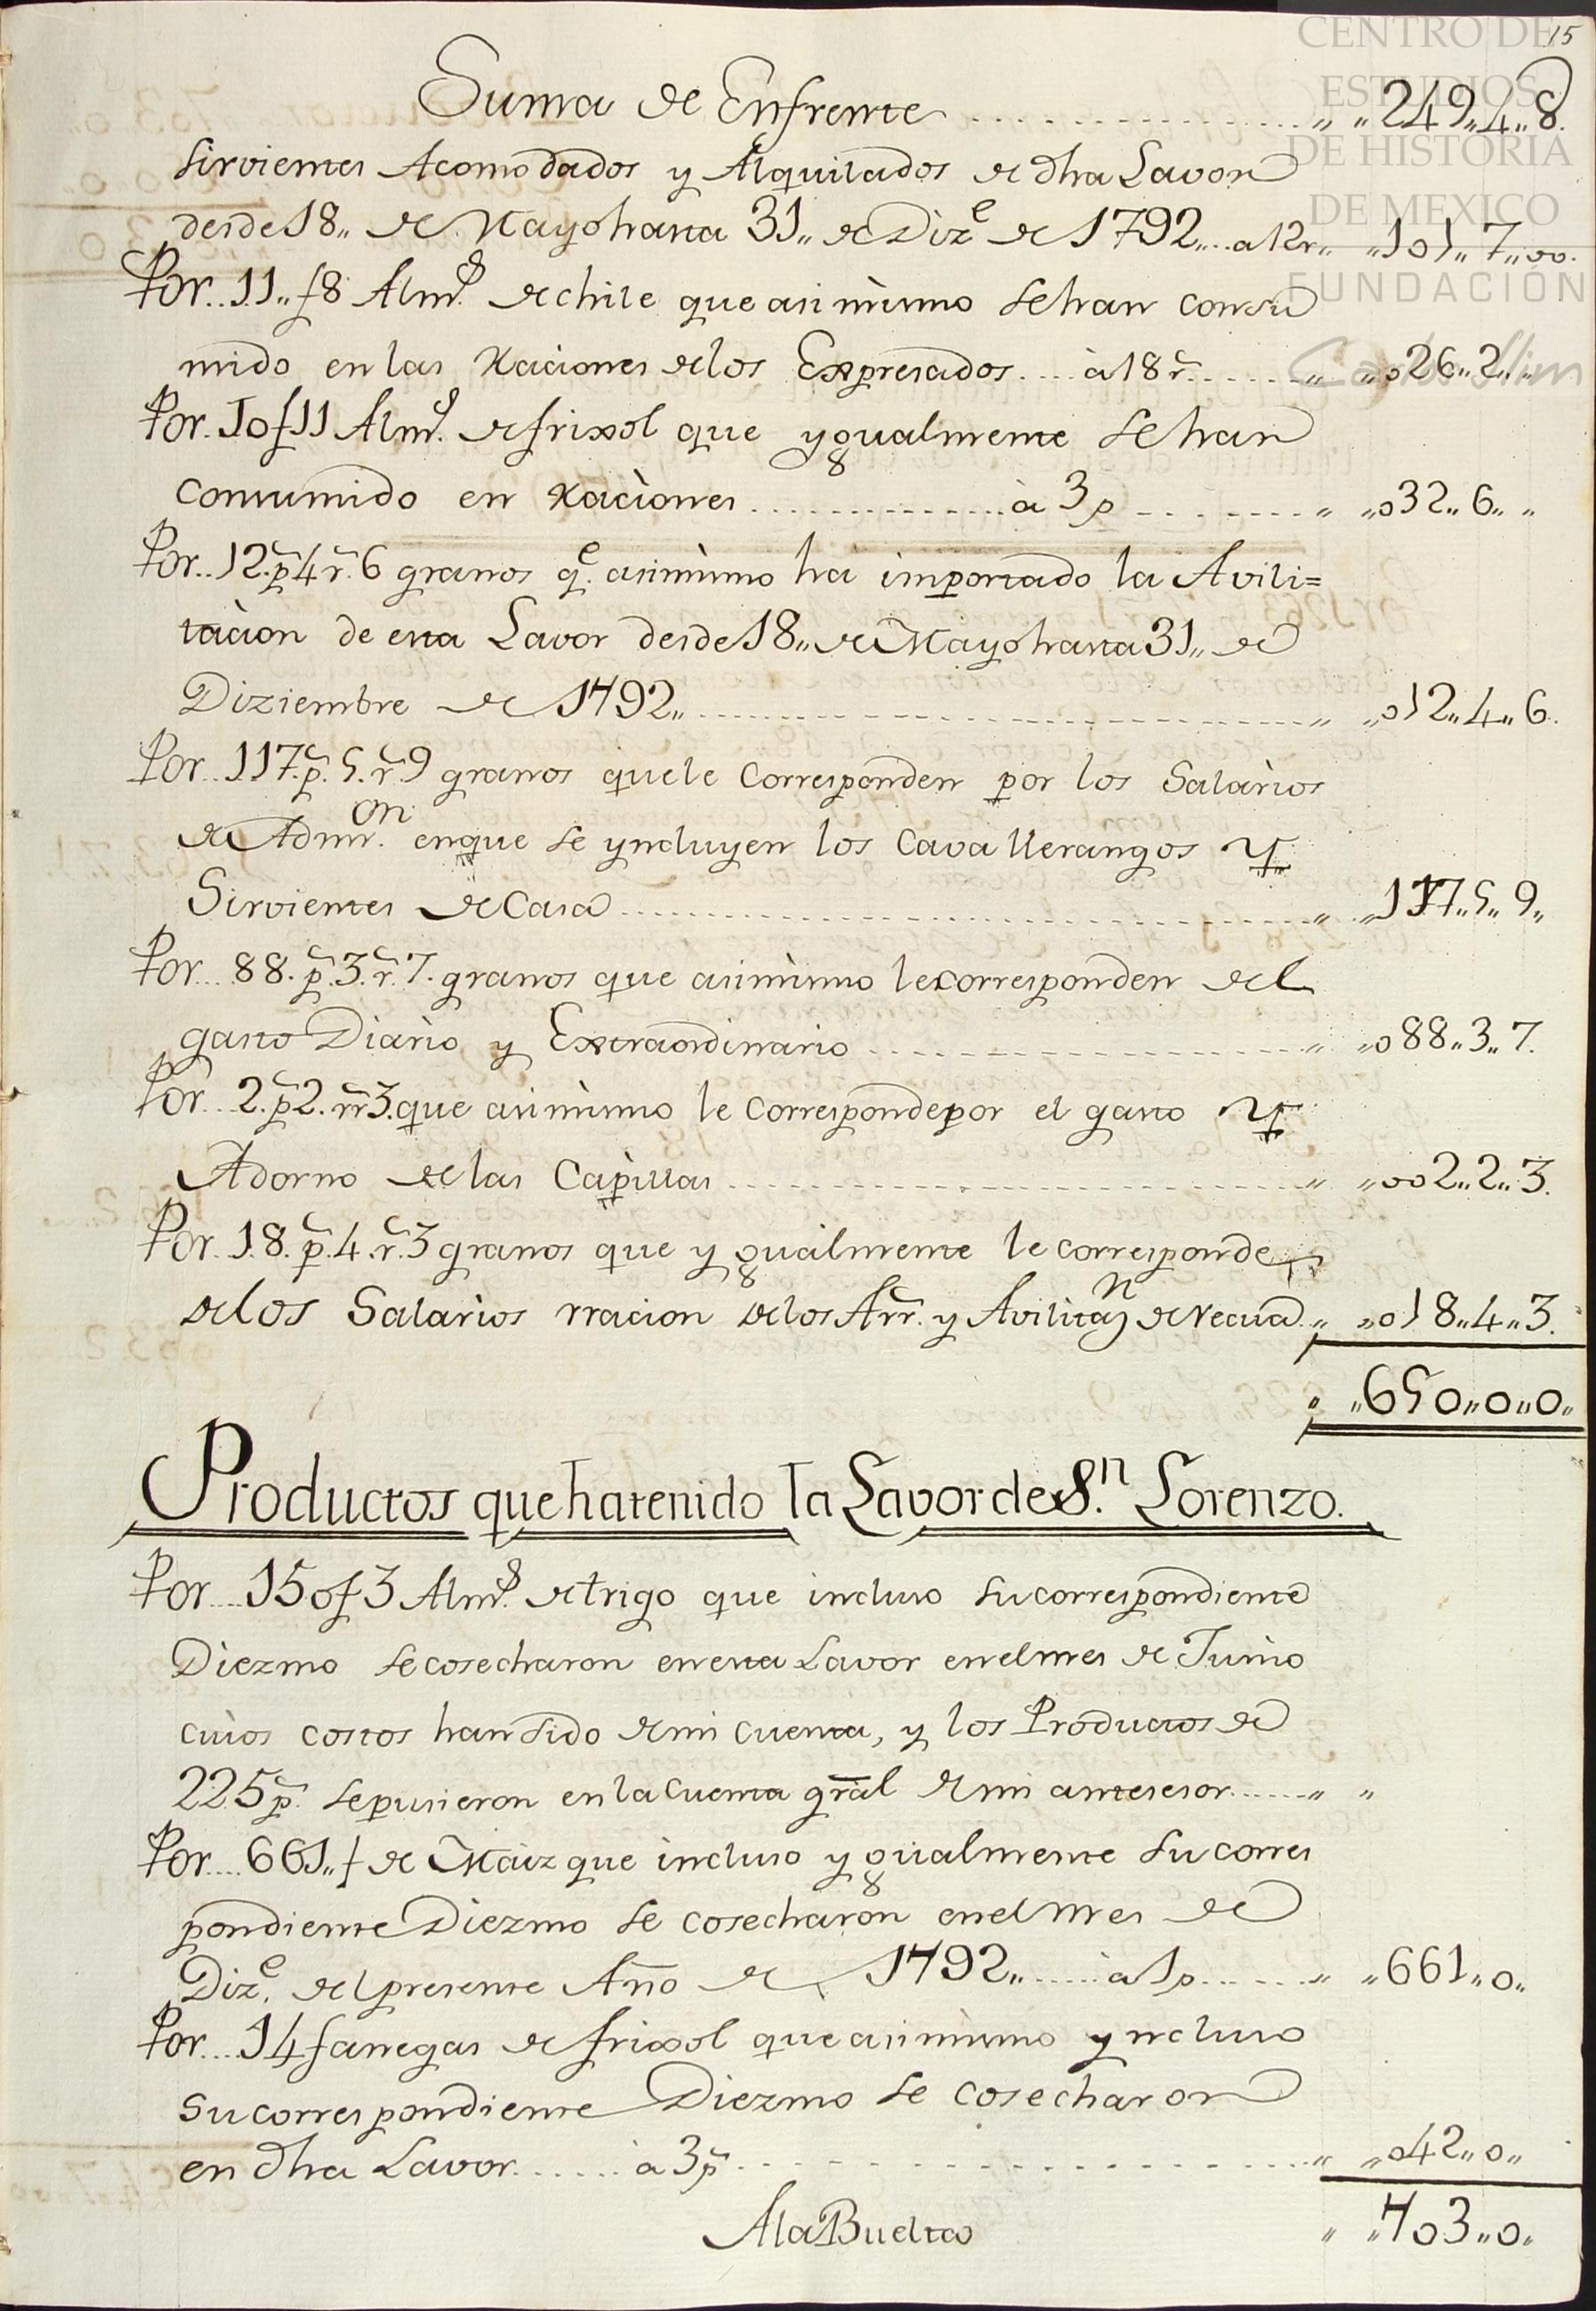 15
CENTRO DE
ESTUDIOS
DE HISTORIA
DE MEXICO
FUNDACIÓN
Carlos Slim
Suma de Enfrente ................ „ „249„4„8.
sirvientes Acomodados y Alquilados de dha Lavor
desde 18„ de Mayo hasta 31„ de Diz.e de 1792„... a 12 r„ „101„7„00.
Por.. 11„ f 8 Alm.s de chile que asi mismo se han consu
mido en las Raciones de los Expresados.... à 18 r.s ....... „ „026„2„ „
Por. 10 f 11 Alm.s de frixol que ygualmente se han
consumido en Raciones ............... à 3 p ........ „ „032„6„ „
Por.. 12. p.s 4 r.s 6 granos q.e asimismo ha importado la Avili=
tacion de esta Lavor desde 18„ de Mayo hasta 31„ de
Diziembre de 1792„ ................ „ „012„4„6.
Por.. 117. p.s 5. r.s 9 granos que le corresponden por los Salarios
de Adm.on en que se yncluyen los Cavallerangos y
Sirvientes de Casa ................ „ „117„5„9„
Por... 88. p.s 3. r.s 7. granos que asimismo le corresponden del
gasto Diario y Extraordinario ................ „ „088„3„7.
Por... 2. p.s 2. rr.s 3. que asimismo le corresponde por el gasto y
Adorno de las Capillas ................ „ „002„2„3.
Por. 18. p.s 4. r.s 3 granos que ygualmente le corresponden
de los Salarios rracion de los Arr.s y Avilitaz.n de Recua.. „ „018„4„3.
„ „650„0„0„
Productos que ha tenido la Lavor de S.n Lorenzo.
Por.... 150 f 3 Alm.s de trigo que incluso su correspondiente
Diezmo se cosecharon en esta Lavor en el mes de Junio
cuios costos han sido de mi cuenta, y los Productos de
225 p.s se pusieron en la cuenta gral de mi antesesor....... „ „
Por.... 661„ f de Maiz que incluso ygualmente su corres
pondiente Diezmo se cosecharon en el mes de
Diz.e del presente Año de 1792„...... à 1 p....... „ „661„0„
Por.... 14 fanegas de frixol que asimismo yncluso
su correspondiente Diezmo se cosecharon
en dha Lavor....... à 3 p.s ................ „ „042„0„
A la Buelta „ „703„0„